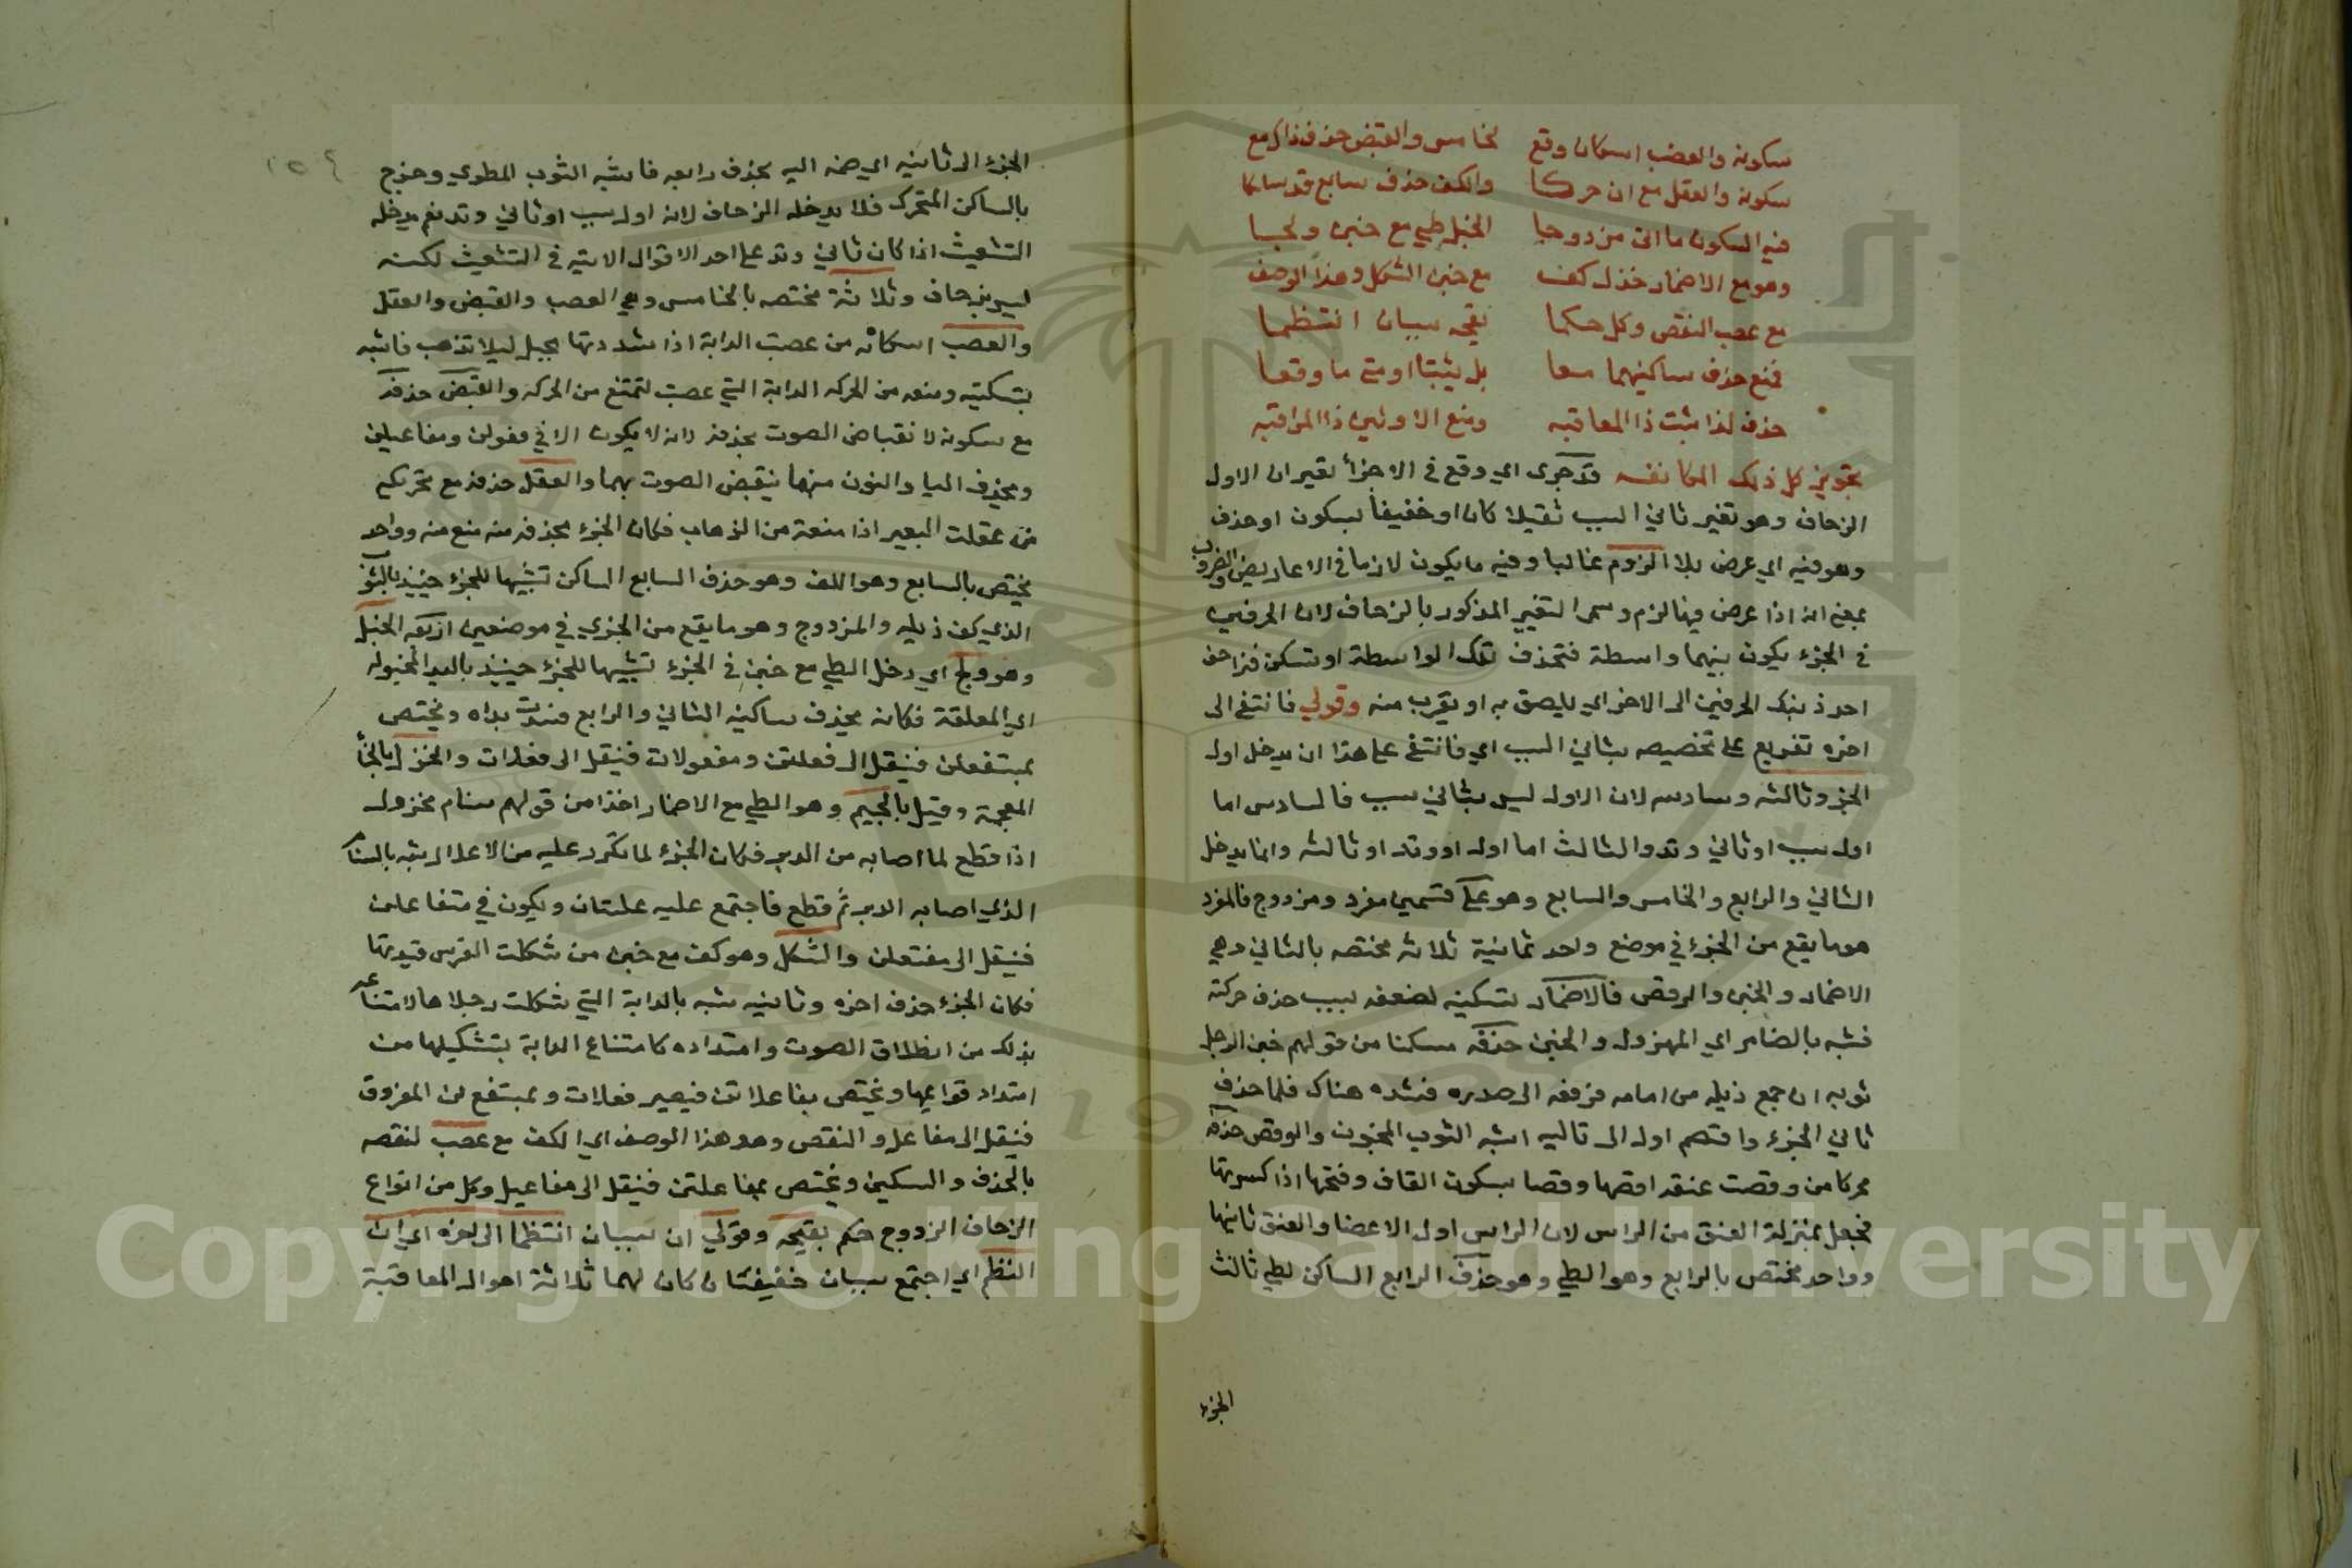 سكونه والعضب اسكان وقع    لخامس والقبض حذف ذاك مع
سكونه والعقل مع ان حركا    والكف حذف سابع قد سكنا
فيه السكون ما اتى مزدوجا    الخبل طي مع خبن ولجبا
وهو مع الاضمار خذل كف    مع خبن الشكل وهذا الوصف
مع عصب النقص وكل حكما    بقبحه سببان انتظما
فمنع حذف ساكنيهما معا    بل يثبتا او متى ما وقعا
حذف لذا ثبت ذا المعاقبه    ومنع الاولين ذا المراقبه
تجويز كل ذلك المكانفه قد جرى اي وقع في الاجزأ تغيران الاول
الزحاف وهو تغير ثاني السبب ثقيلا كان او خفيفا بسكون او حذف
وهو فيه اي عرض بلا الزوم غالبا وفيه ما يكون لازما في الاعاريض والضروب
بمعنى انه اذا عرض فيها لزم وسمى التغيير المذكور بالزحاف لان الحرفين
في الجزء يكون بينهما واسطة فتحذف تلك الواسطة او تسكن فزاحف
احد ذينك الحرفين الى الاخر اي يلصق به او يقرب منه وقولي فانتفى الى
اخره تفريع على تخصيصه بثاني السبب اي فانتفى على هذا ان يدخل اول
الجزء وثالثه وسادسه لان الاول ليس بثاني سبب فالسادس اما
اول سبب او ثاني وتد والثالث اما اول او وتد او ثالثه وانما يدخل
الثاني والرابع والخامس والسابع وهو على قسمين مفرد ومزدوج فالمفرد
هو ما يقع من الجزء في موضع واحد ثمانية ثلاثه مختصه بالثاني وهي
الاضمار والخبن والوقص فالاضمار تسكينه لضعفه بسبب حذف حركته
فشبه بالضامر اي المهزول والخبن حذفه مسكنا من قولهم خبن الرجل
ثوبه ان جمع ذيله من امامه فرفعه الى صدره فشده هناك فلما حذف
ثاني الجزء وانضم اوله الى تاليه اشبه الثوب المخبون والوقص حذفه
محركا من وقصت عنقه اقصها وقصا بسكون القاف وفتحها اذا كسرتها
فجعل بمنزلة العنق من الراس لان الراس اول الاعضا والعنق ثانيها
وواحد مختص بالرابع وهو الطي وهو حذف الرابع الساكن لطي ثالث
الجزء
الجزء الى ثانيه اي ضمه اليه بحذف رابعه فاشبه الثوب المطوي وخرج
بالساكن المتحرك فلا يدخله الزحاف لانه اول سبب او ثاني وتد نعم يدخله
التشعيث اذا كان ثاني وتد على احد الاقوال الاتيه في التشعيث لكنه
ليس بزحاف وثلاثة مختصه بالخامس وهي العصب والقبض والعقل
والعصب اسكانه من عصبت الدابة اذا شددتها بحبل ليلا تذهب فاشبه
بتسكينه ومنعه من الحركه الدابة التي عصبت لتمتنع من الحركه والقبض حذفه
مع سكونه لانقباض الصوت بحذفه لانه لا يكون الا في فعولن ومفاعيلن
وبحذف اليا والنون منهما ينقبض الصوت بهما والعقل حذفه مع تحريكه
من عقلت البعير اذا منعته من الذهاب فكان الجزء بحذفه منه منع منه وواحد
يختص بالسابع وهو الكف وهو حذف السابع الساكن تشبيها للجزء حينيذ بالثوب
الذي كف ذيله والمزدوج وهو ما يقع من الجزء في موضعين اربعه الخبل
وهو ولج اي دخل الطي مع خبن في الجزء تشبيها للجزء حينيذ باليد المخبوله
اي المعلقة فكانه بحذف ساكنيه الثاني والرابع فسدت يداه ويختص
بمستفعلن فينقل الى فعلتن ومفعولات فينقل الى فعلات والخزل بالخا
المعجمة وقيل بالجيم وهو الطي مع الاضمار اخذا من قولهم سنام مخزول
اذا قطع لما اصابه من الدبر فكان الجزء لما تكرر عليه من الاعلال شبه بالسنام
الذي اصابه الدبر ثم قطع فاجتمع عليه علتان ويكون في متفاعلن
فينقل الى مفتعلن والشكل وهو كف مع خبن من شكلت الفرس قيدتها
فكان الجزء حذف اخره وثانيه شبه بالدابة التي شكلت رجلاها لامتناعه
بذلك من انطلاق الصوت وامتداده كامتناع الدابة بتشكيلها من
امتداد قوايمها ويختص بفاعلاتن فيصير فعلات وبمستفع لن المفروق
فينقل الى مفاعل والنقص وهو هذا الوصف اي الكف مع عصب لنقصه
بالحذف والسكين ويختص بمفاعلتن فينقل الى مفاعيل وكل من انواع
الزحاف المزدوج حكم بقبحه وقولي ان سببان انتظما الى اخره اي ان
انتظم اي اجتمع سببان خفيفتان كان لهما ثلاثة احوال المعاقبة